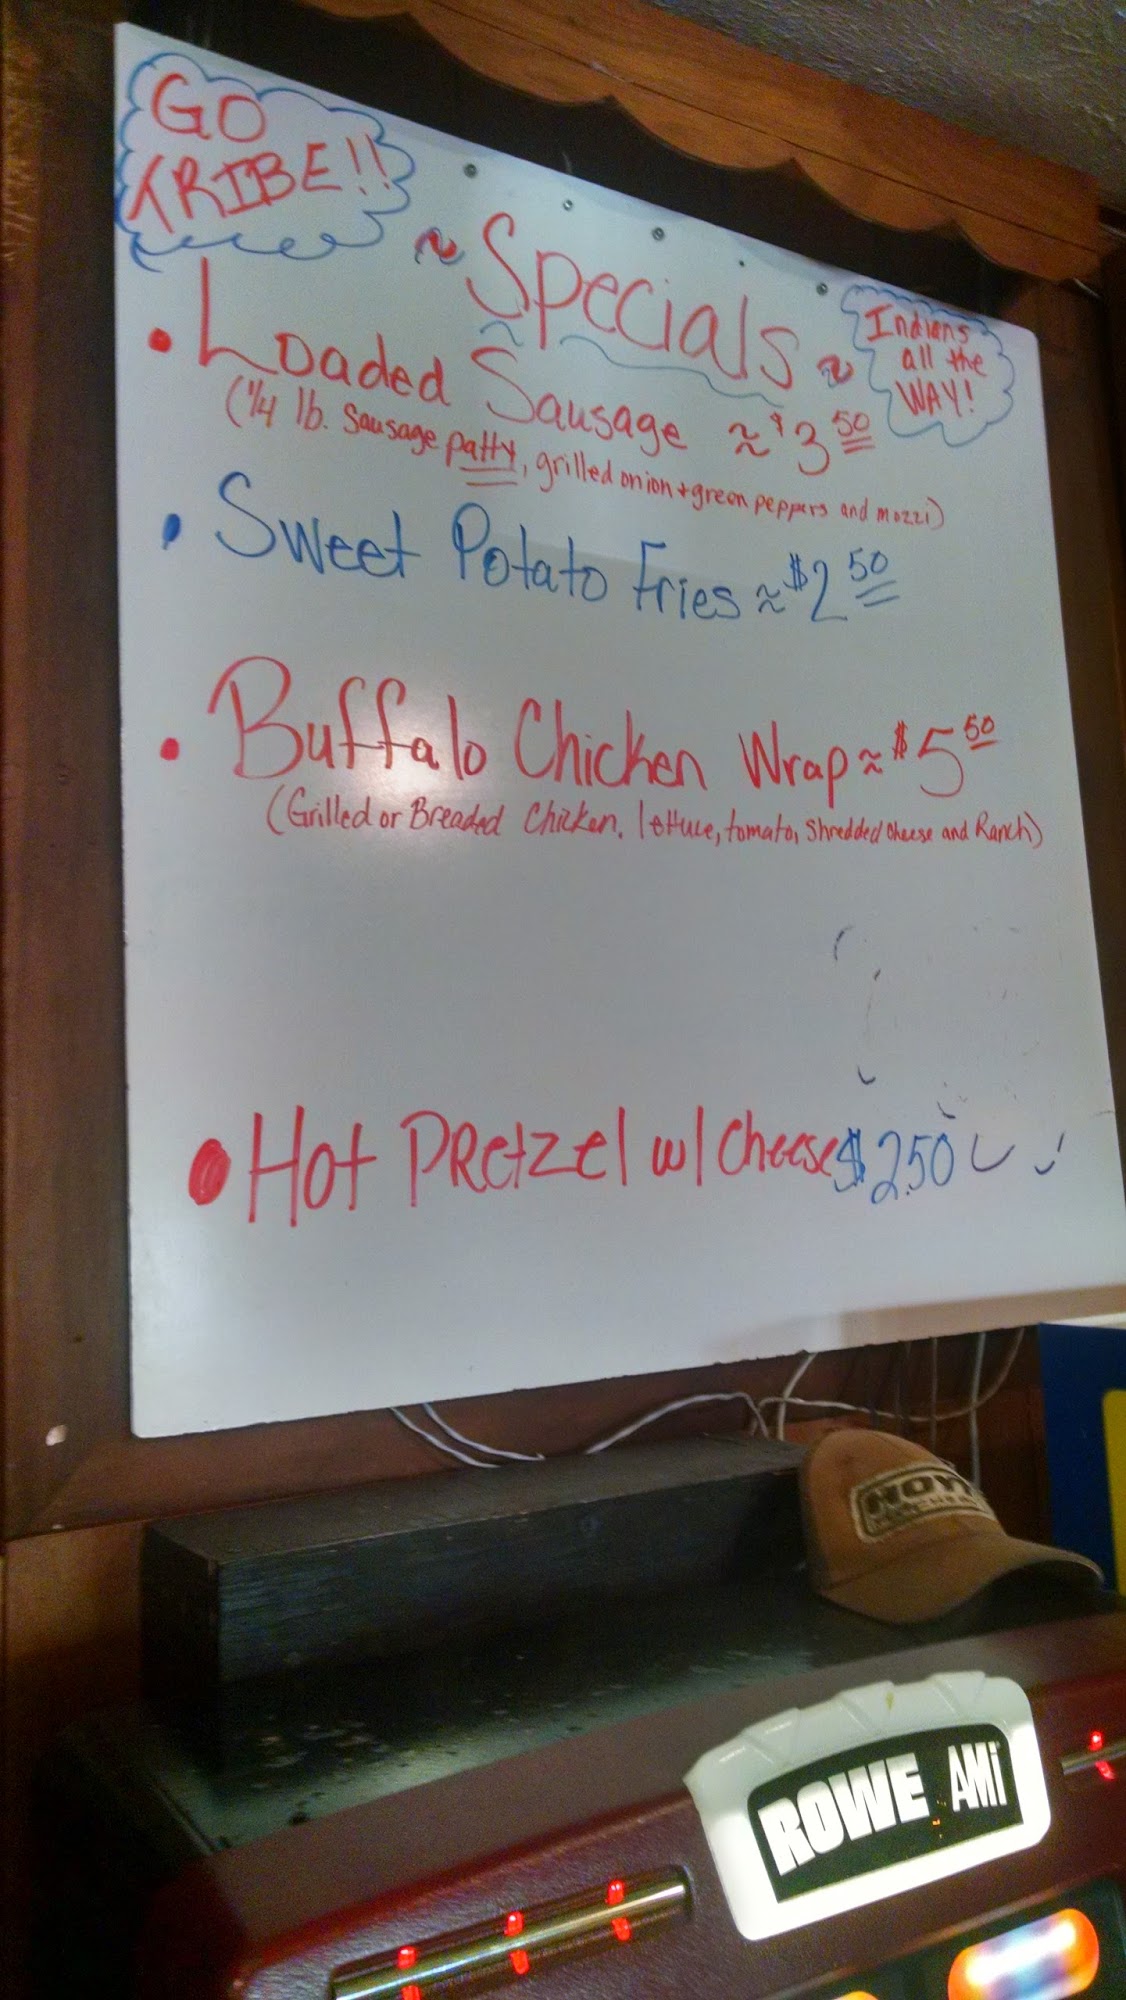 GO
TRIBE!!
~ Specials ~
Indians
all the
WAY!
• Loaded Sausage ≈ $3 50
(1/4 lb. Sausage patty, grilled onion + green peppers and mozzi)
• Sweet Potato Fries ≈ $2 50
• Buffalo Chicken Wrap ≈ $5 50
(Grilled or Breaded Chicken, lettuce, tomato, Shredded Cheese and Ranch)
• Hot Pretzel w/ Cheese $2.50
HOYT
ROWE AMi